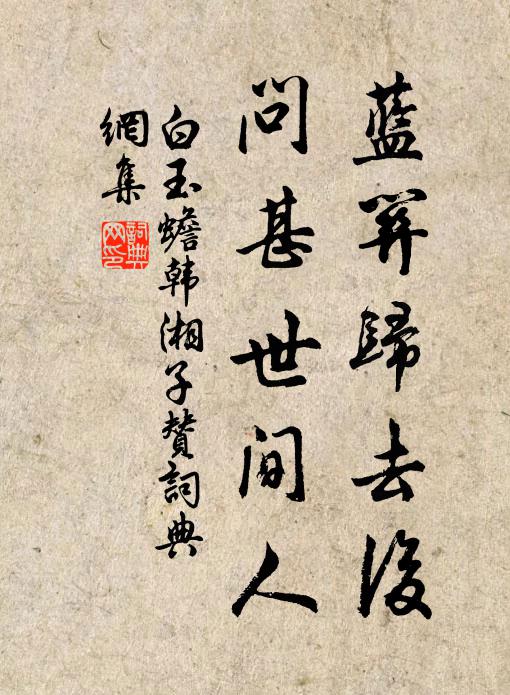 藍關歸去後
問甚世間人
白玉蟾韓湘子贊詞典
網集
詞典
网印